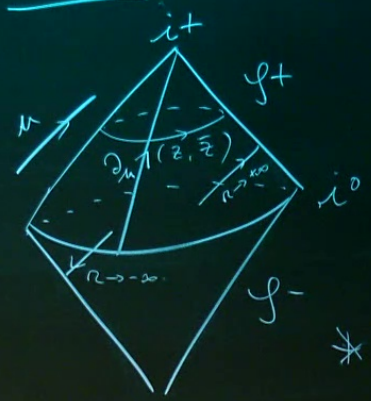 i+
𝓘+
u
∂u (z, z̄)
r→∞
i⁰
r→-∞
𝓘-